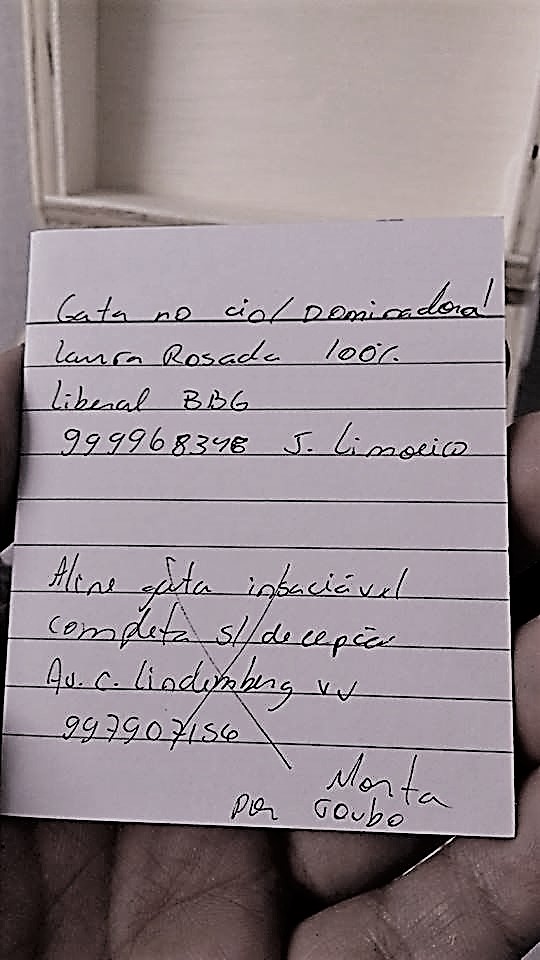 Gata no cio/Dominadora!
Laura Rosada 100%
liberal BBG
999968348 J. Limoeiro
Aline gata insaciável
completa s/ decepção
Av. C. Lindemberg VV
997907156
Morta
por roubo